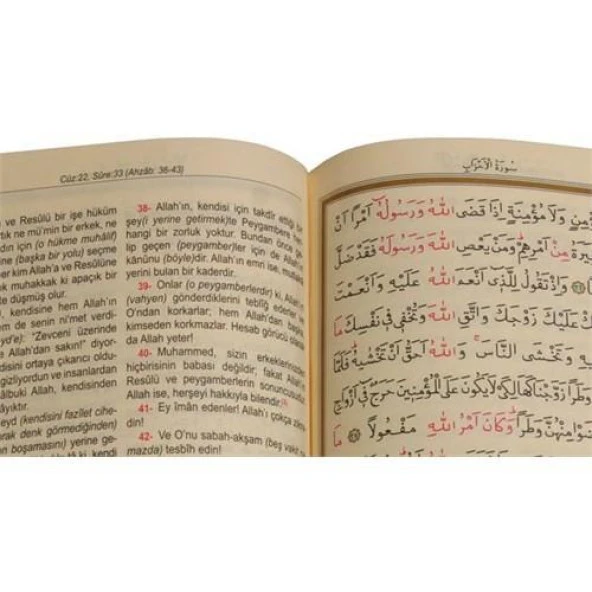 Cüz:22, Sûre:33 (Ahzâb: 36-43)
ve Resûlü bir işe hüküm
ne mü'min bir erkek, ne
dın için (o hükme muhâlif)
(başka bir yolu) seçme
er kim Allah'a ve Resûlüne
muhakkak ki apaçık bir
düşmüş olur.
kendisine hem Allah'ın
em de senin ni'met verdi-
"Zevceni üzerinde
Allah'dan sakın!" diyor-
disini ortaya çıkarıcı oldu-
gizliyordun ve insanlardan
Hâlbuki Allah, kendisinden
lâyıktır.
(kendisini fazîlet cihe-
arak denk görmediğinden)
boşamasını) yerine ge-
38- Allah'ın, kendisi için takdîr ettiği bir
şey(i yerine getirmek)te Peygambere her-
hangi bir zorluk yoktur. Bundan önce ge-
lip geçen (peygamber)ler için de Allah'ın
kānûnu (böyle)dir. Allah'ın emri ise, mutlaka
yerini bulan bir kaderdir.
39- Onlar (o peygamberlerdir) ki, Allah'ın
(vahyen) gönderdiklerini teblîğ ederler ve
O'ndan korkarlar; hem Allah'dan başka
kimseden korkmazlar. Hesab görücü olarak
da Allah yeter!
40- Muhammed, sizin erkeklerinizden
hiçbirisinin babası değildir, fakat Allah'ın
Resûlü ve peygamberlerin sonuncusudur.
Allah ise, herşeyi hakkıyla bilendir.
41- Ey îmân edenler! Allah'ı çokça zikre-
din!
42- Ve O'nu sabah-akşam (beş vakit na-
mazda) tesbîh edin!
سُورَةُ الْاَحْزَابِ
وَلَا مُؤْمِنَةٍ اِذَا قَضَى اللّٰهُ وَرَسُولُهُ اَمْرًا اَنْ
مِنْ اَمْرِهِمْ وَمَنْ يَعْصِ اللّٰهَ وَرَسُولَهُ فَقَدْ ضَلَّ
وَاِذْ تَقُولُ لِلَّذِى اَنْعَمَ اللّٰهُ عَلَيْهِ وَاَنْعَمْتَ
عَلَيْكَ زَوْجَكَ وَاتَّقِ اللّٰهَ وَتُخْفِى فِى نَفْسِكَ مَا
وَتَخْشَى النَّاسَ وَاللّٰهُ اَحَقُّ اَنْ تَخْشٰيهُ فَلَمَّا
وَطَرًا زَوَّجْنَاكَهَا لِكَىْ لَا يَكُونَ عَلَى الْمُؤْمِنِينَ حَرَجٌ فِى اَزْوَاجِ
مِنْهُنَّ وَطَرًا وَكَانَ اَمْرُ اللّٰهِ مَفْعُولًا مَا